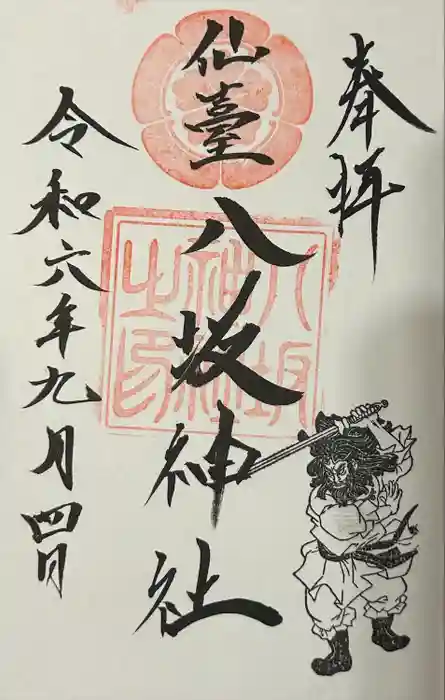 奉拝
仙臺
八坂神社
令和六年九月四日
八坂
神社
之印